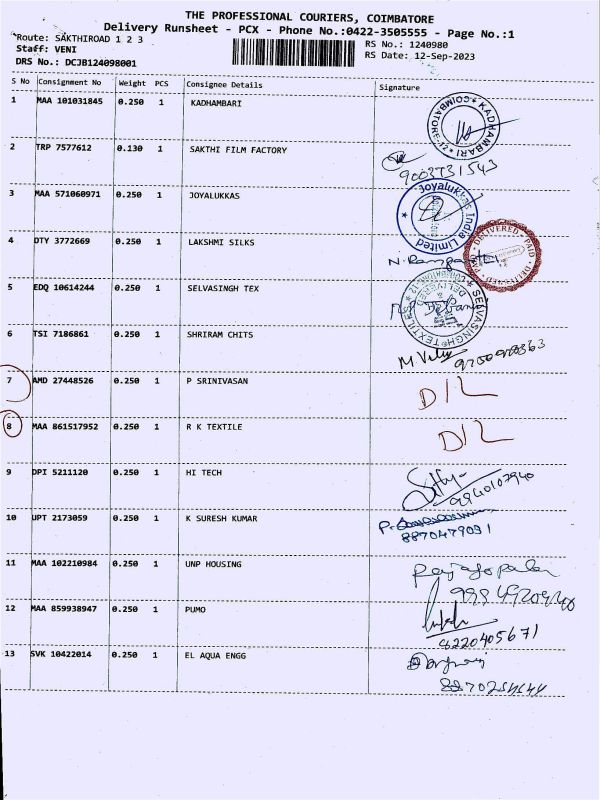 THE PROFESSIONAL COURIERS, COIMBATORE
Delivery Runsheet - PCX - Phone No.:0422-3505555 - Page No.:1
Route: SAKTHIROAD 1 2 3
RS No.: 1240980
Staff: VENI
RS Date: 12-Sep-2023
DRS No.: DCJB124098001
S No Consignment No Weight PCS Consignee Details Signature
1 MAA 101031845 0.250 1 KADHAMBARI
KADHAMBARI COIMBATORE-12
2 TRP 7577612 0.130 1 SAKTHI FILM FACTORY
9003731543
3 MAA 571060971 0.250 1 JOYALUKKAS
Joyalukkas India Limited
4 DTY 3772669 0.250 1 LAKSHMI SILKS
DELIVERED PAID
5 EDQ 10614244 0.250 1 SELVASINGH TEX
SELVASINGH TEXTILES
DELIVERED
6 TSI 7186861 0.250 1 SHRIRAM CHITS
7 AMD 27448526 0.250 1 P SRINIVASAN
D/L
8 MAA 861517952 0.250 1 R K TEXTILE
D/L
9 DPI 5211120 0.250 1 HI TECH
9940107940
10 UPT 2173059 0.250 1 K SURESH KUMAR
8870479091
11 MAA 102210984 0.250 1 UNP HOUSING
Rajagopalan
12 MAA 859938947 0.250 1 PUMO
8220405671
13 SVK 10422014 0.250 1 EL AQUA ENGG